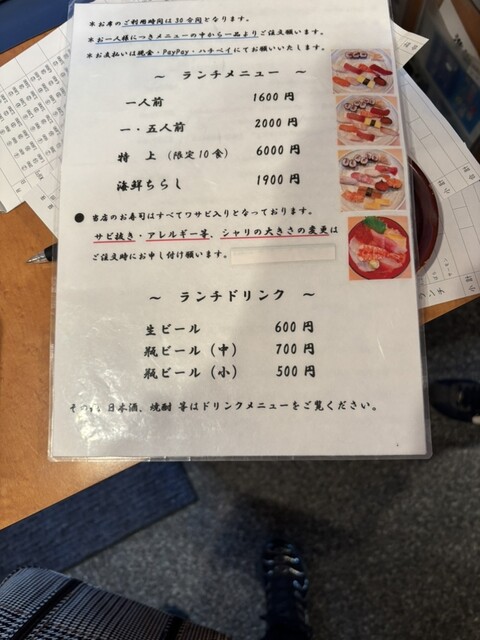 ※お席のご利用時間は30分間となります。
※お一人様につきメニューの中から一品よりご注文願います。
※お支払いは現金・PayPay・ハチペイにてお願いいたします。
～ ランチメニュー ～
一人前 1600円
一・五人前 2000円
特上 (限定10食) 6000円
海鮮ちらし 1900円
●当店のお寿司はすべてワサビ入りとなっております。
サビ抜き・アレルギー等、シャリの大きさの変更は
ご注文時にお申し付け願います。
～ ランチドリンク ～
生ビール 600円
瓶ビール（中） 700円
瓶ビール（小） 500円
日本酒、焼酎 等はドリンクメニューをご覧ください。